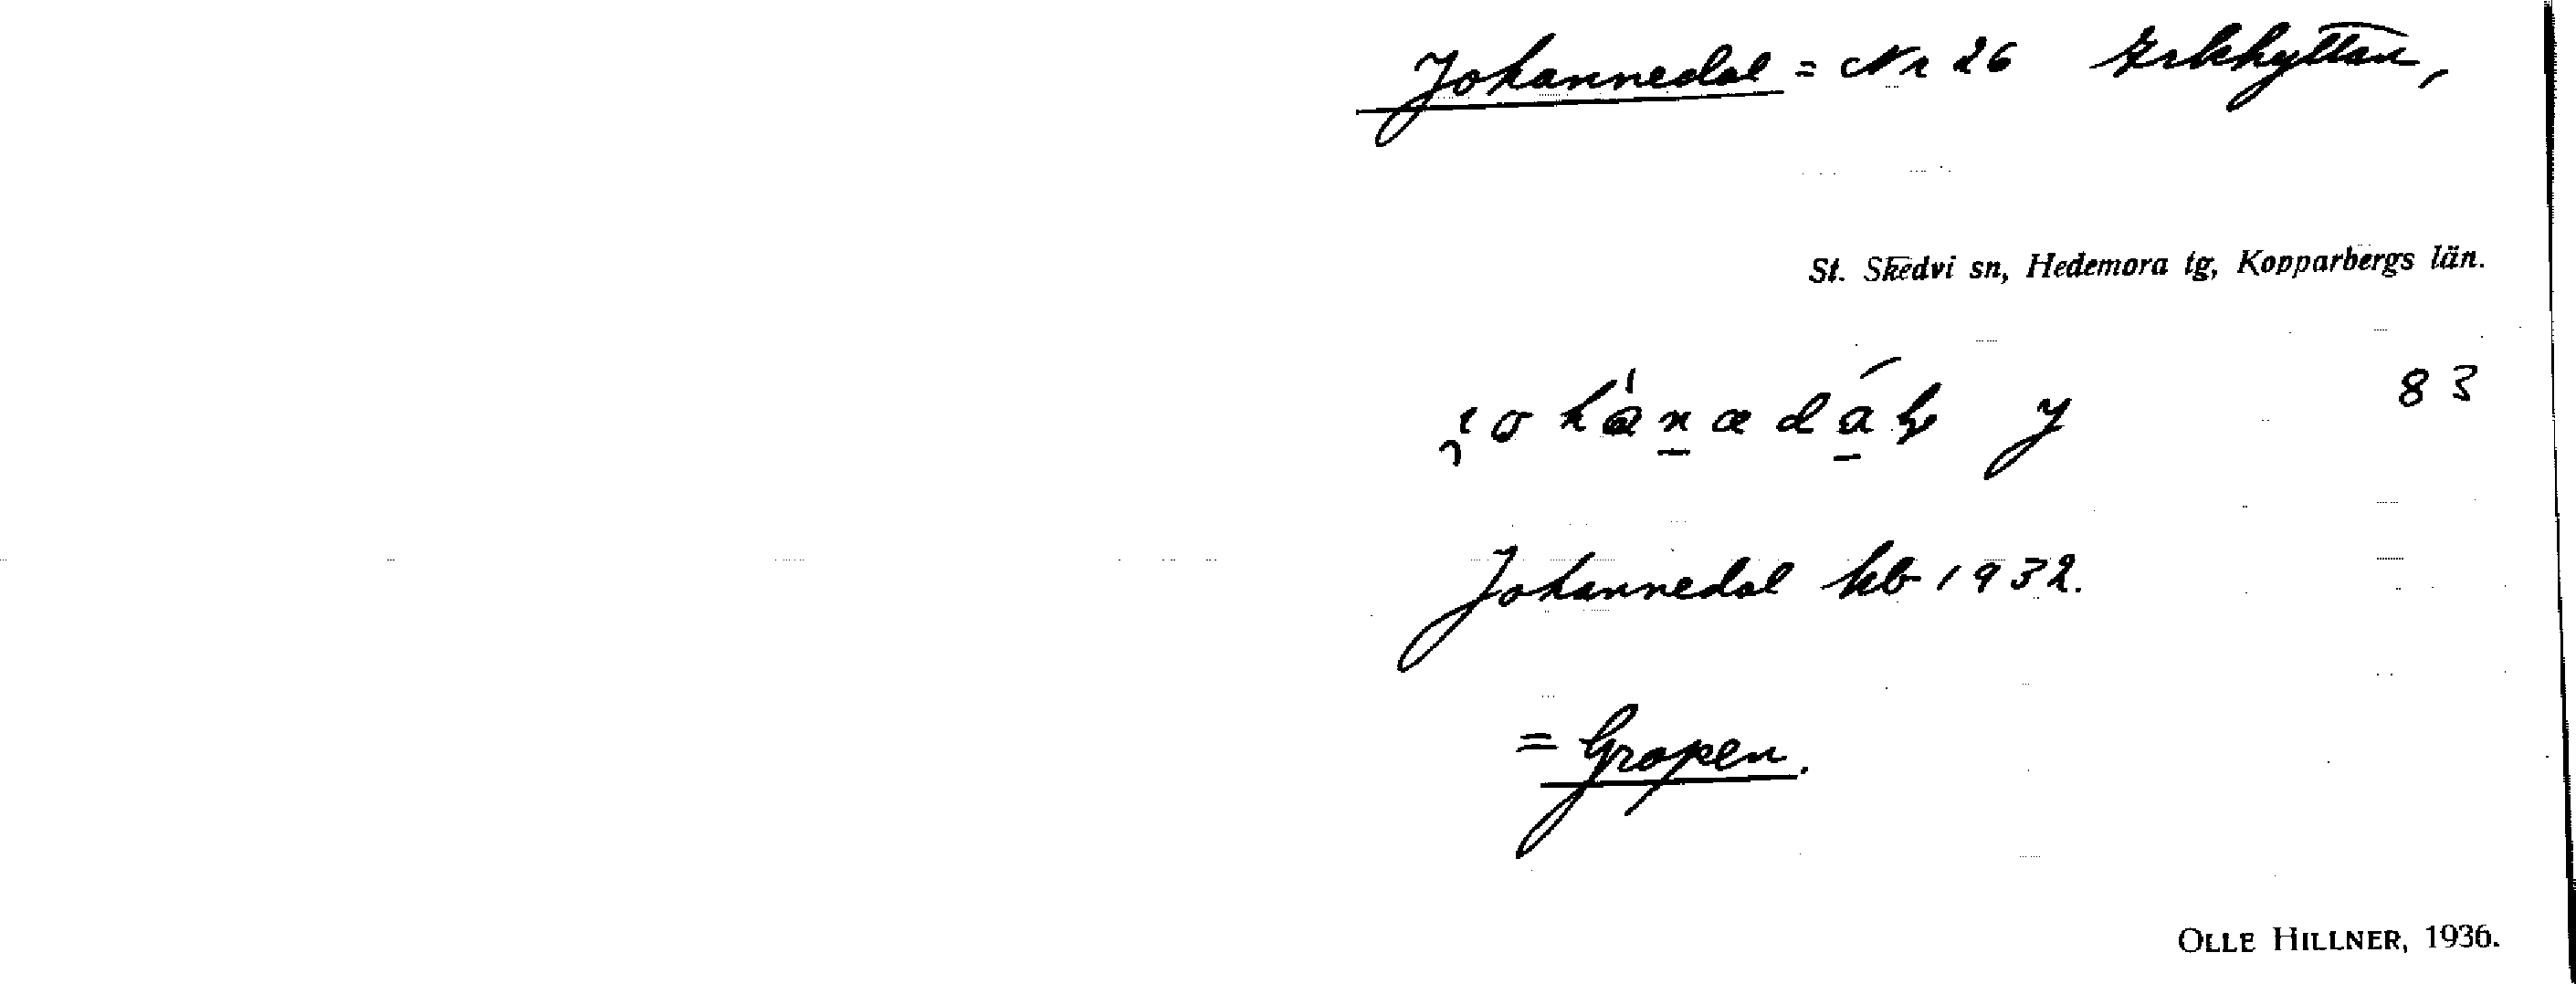 Johannedal = Nr 26 Erkhyttan,
St. Skedvi sn, Hedemora tg, Kopparbergs län.
83
Johannedal kb 1932.
= Gropen.
OLLE HILLNER, 1936.